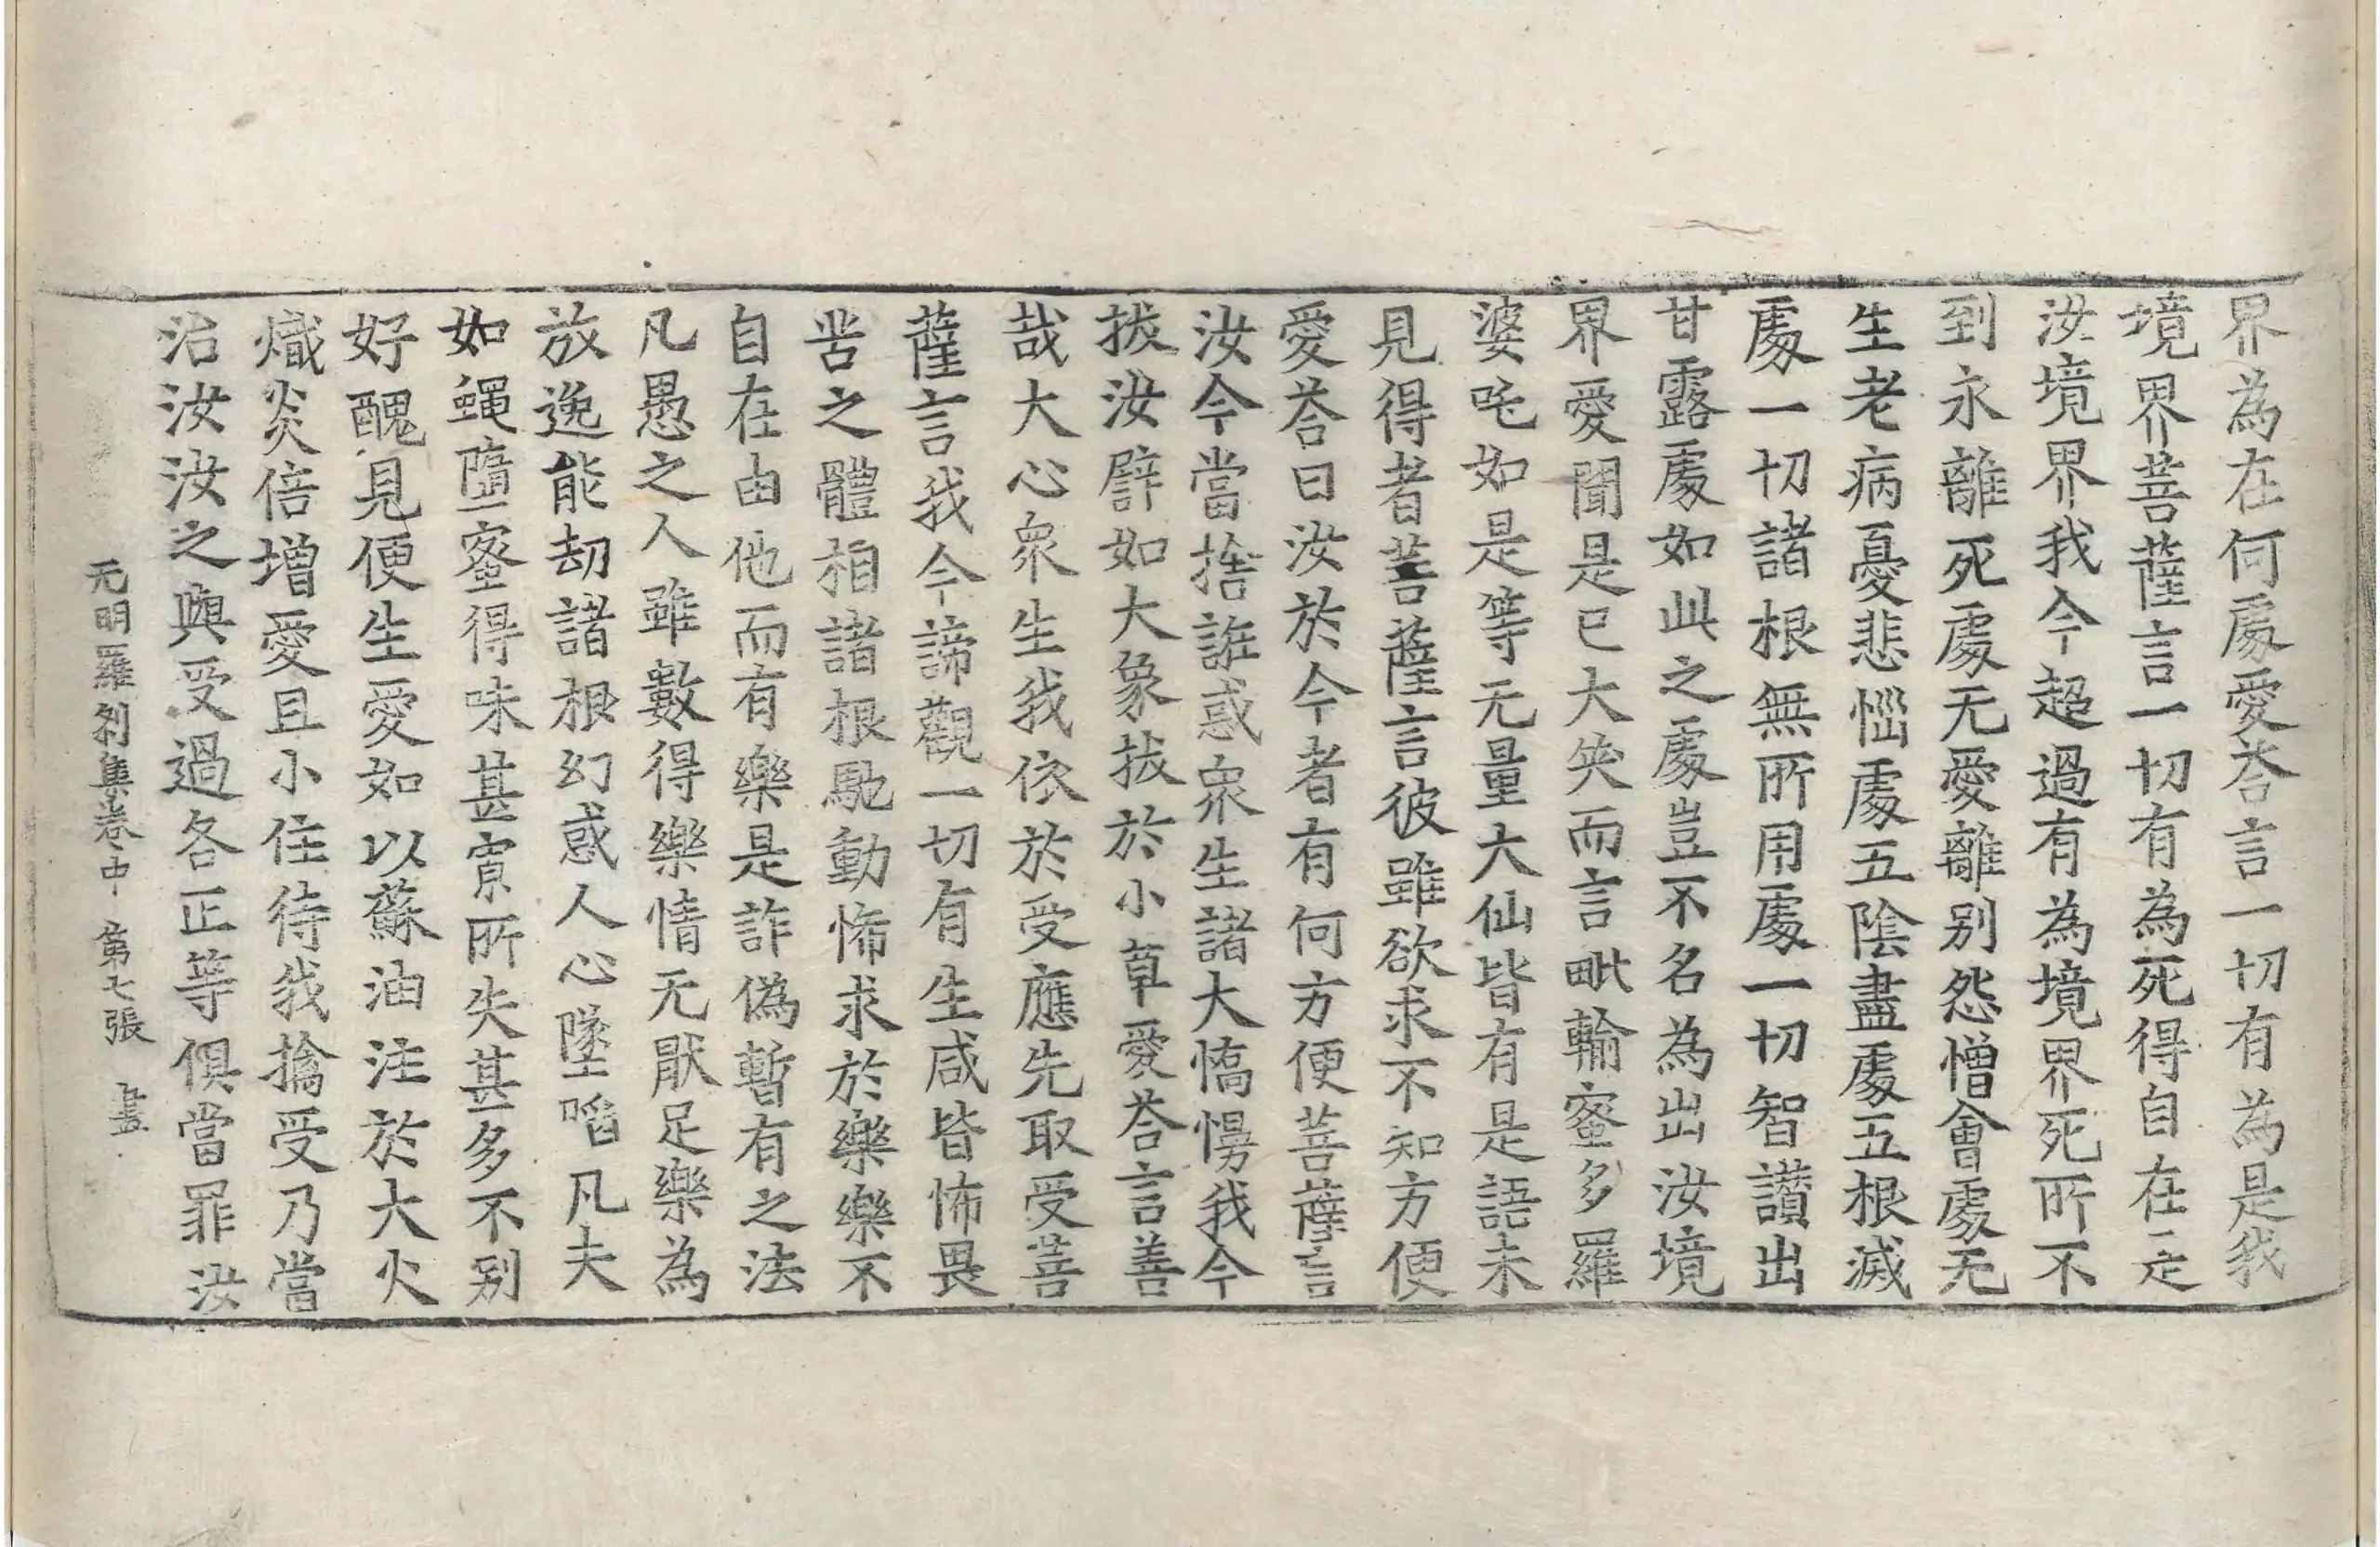 界為在何處愛荅言一切有為是我
境界菩薩言一切有為死得自在定
汝境界我今超過有為境界死所不
到永離死處无愛離別怨憎會處无
生老病憂悲惱處五陰盡處五根滅
處一切諸根無所用處一切智讚出
甘露處如此之處豈不名為出汝境
界愛聞是已大𥬇而言毗輸蜜多羅
婆吒如是等无量大仙皆有是語未
見得者菩薩言彼雖欲求不知方便
愛荅曰汝於今者有何方便菩薩言
汝今當捨誑惑衆生諸大憍慢我今
拔汝譬如大象拔於小草愛荅言善
哉大心衆生我依於受應先取受菩
薩言我今諦觀一切有生咸皆怖畏
苦之體相諸根馳動怖求於樂樂不
自在由他而有樂是詐偽暫有之法
凡愚之人雖數得樂情无猒足樂為
放逸能劫諸根幻惑人心墜啗凡夫
如蠅墮蜜得味甚寡所失甚多不別
好醜見便生愛如以蘇油注於大火
熾炎倍增愛且小住待我擒受乃當
治汝汝之與受過各正等俱當罪汝
无明羅刹集卷中 第七張 畫